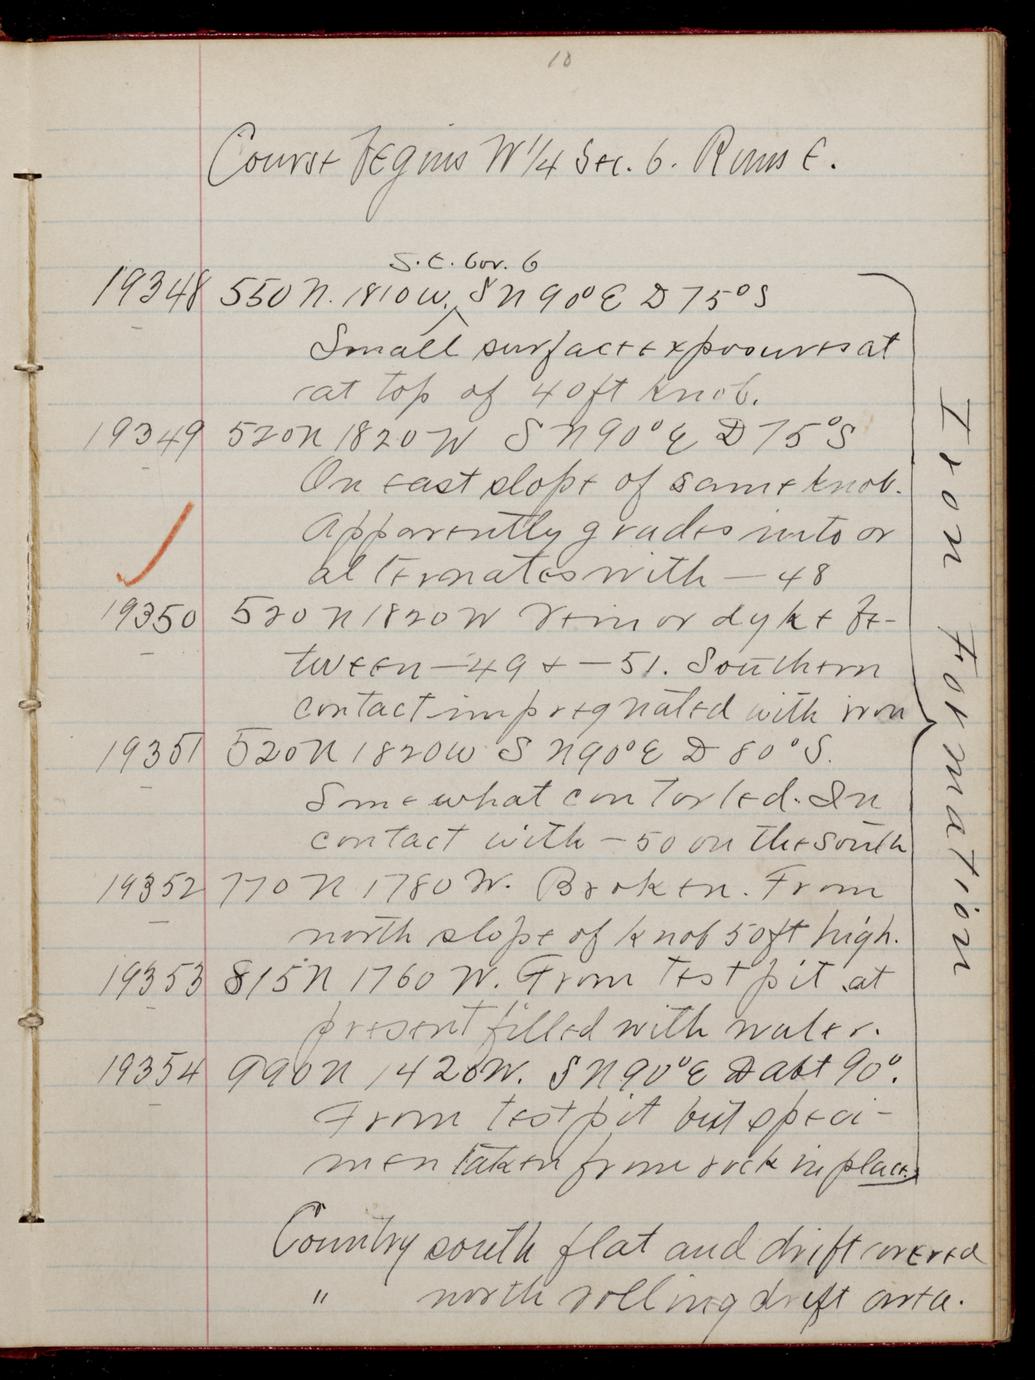 10
Course begins W 1/4 Sec. 6. Runs E.
S.E. Cor. 6
19348 550 N. 1810 W. S N 90° E D 75° S
Small surface exposures at
at top of 40 ft knob.
19349 520 N 1820 W S N 90° E D 75° S
On east slope of same knob.
Apparently grades into or
alternates with — 48
19350 520 N 1820 W Vein or dyke be-
tween — 49 & — 51. Southern
contact impregnated with iron
19351 520 N 1820 W S N 90° E D 80° S.
Somewhat contorted. In
contact with — 50 on the south
19352 770 N 1780 W. Broken. From
north slope of knob 50 ft high.
19353 815 N 1760 W. From test pit at
present filled with water.
19354 990 N 1420 W. S N 90° E D abt 90°.
From test pit but speci-
men taken from rock in place.
Iron Formation
Country south flat and drift covered
" north rolling drift area.